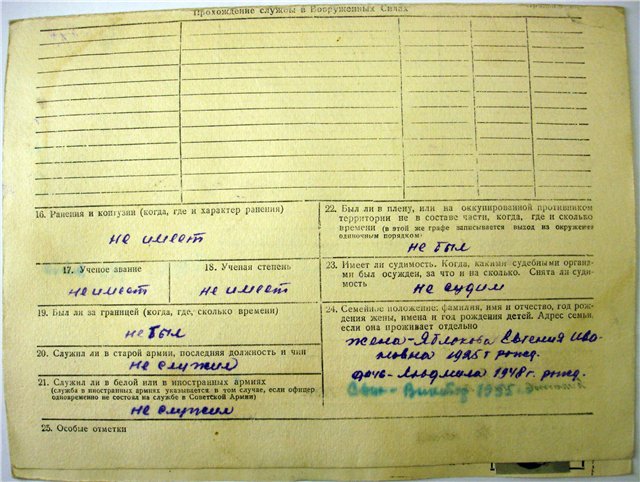 Прохождение службы в Вооруженных Силах
16. Ранения и контузии (когда, где и характер ранения)
не имеет
17. Ученое звание
не имеет
18. Ученая степень
не имеет
19. Был ли за границей (когда, где, сколько времени)
не был
20. Служил ли в старой армии, последняя должность и чин
не служил
21. Служил ли в белой или в иностранных армиях
(служба в иностранных армиях указывается в том случае, если офицер
одновременно не состоял на службе в Советской Армии)
не служил
22. Был ли в плену, или на оккупированной противником
территории не в составе части, когда, где и сколько
времени (в этой же графе записывается выход из окружения
одиночным порядком)
не был
23. Имеет ли судимость. Когда, какими судебными органа-
ми был осужден, за что и на сколько. Снята ли суди-
мость
не судим
24. Семейное положение: фамилия, имя и отчество, год рож-
дения жены, имена и год рождения детей. Адрес семьи,
если она проживает отдельно
жена - Яблокова Евгения Ива-
новна 1925 г рожд.
дочь - Людмила 1948 г. рожд.
Сын - Виктор 1955
25. Особые отметки